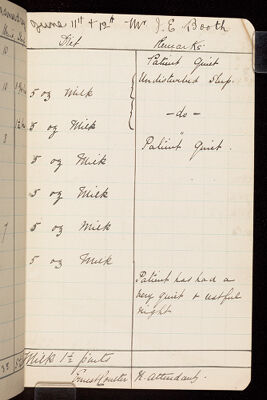 June 11th & 12th Mr J. E. Booth
Diet Remarks
Patient Quiet
Undisturbed Sleep.
5 oz Milk
— do —
5 oz Milk
5 oz Milk Patient Quiet.
5 oz Milk
5 oz Milk
5 oz Milk
Patient has had a
very quiet & restful
night
Milk 1½ pints
Ernest Coulter H. attendant.